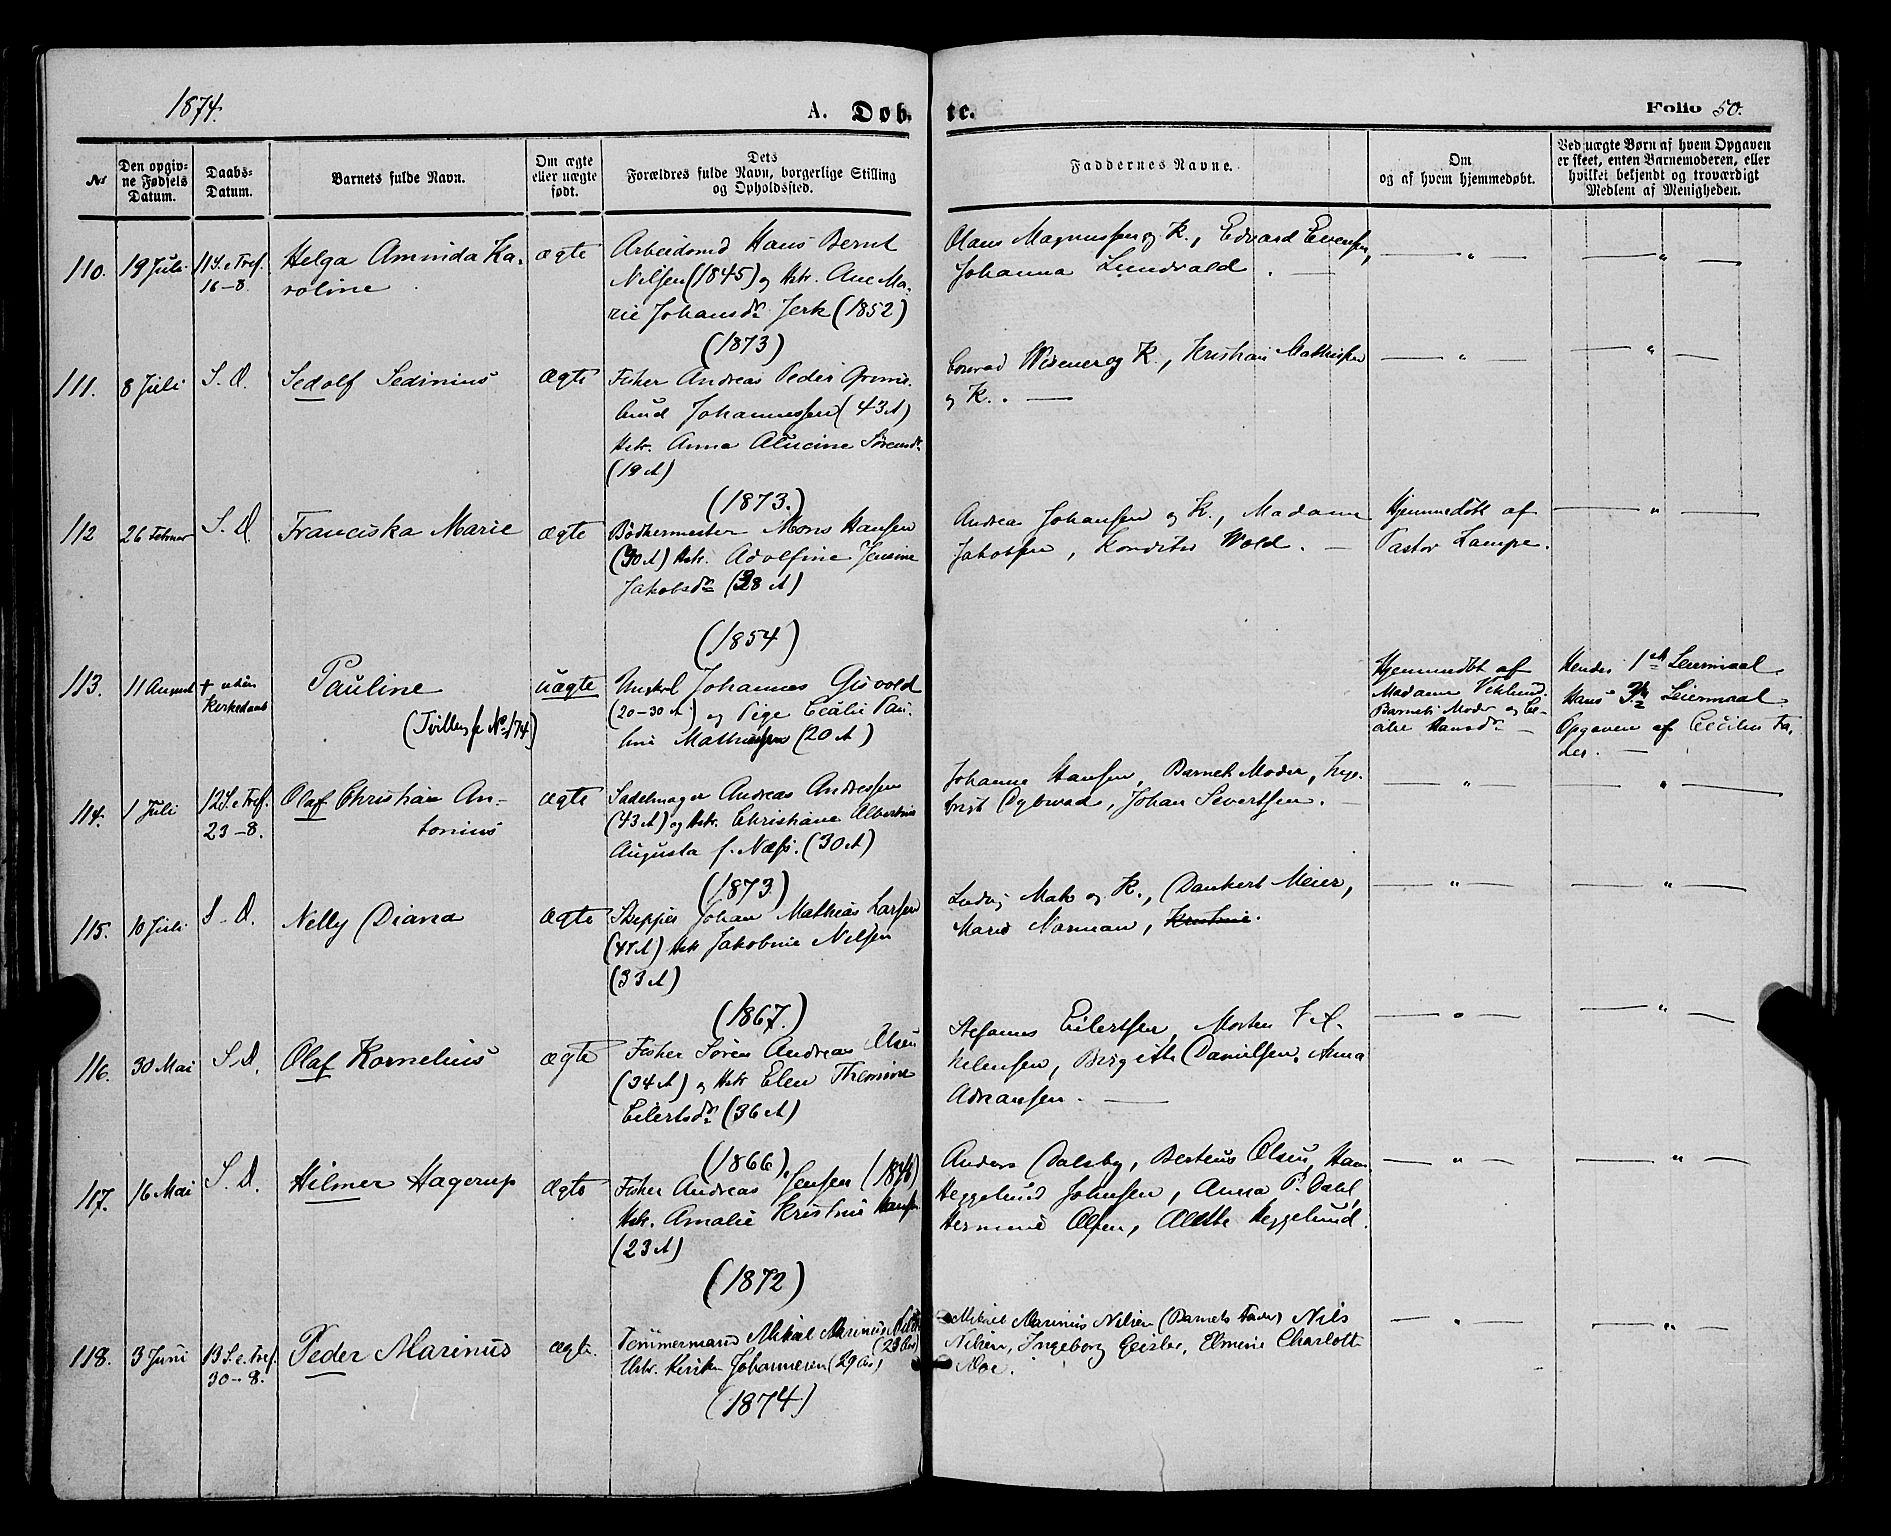 1874.
A. Døb- te.
Folio 50.
№
Den opgiv-
ne Fødsels
Datum.
Daabs-
Datum.
Barnets fulde Navn.
Om ægte
eller uægte
født.
Dets
Forældres fulde Navn, borgerlige Stilling
og Opholdssted.
Faddernes Navne.
Om
og af hvem hjemmedøbt.
Ved uægte Børn af hvem Opgaven
er skeet, enten Barnemoderen, eller
hvilket bekjendt og troværdigt
Medlem af Menigheden.
110. 19 Juli 11 S. e Tref.
16-8.
Helga Aminda Ka-
roline
ægte
Arbeidsmd Hans Bernt
Nilsen (1845) og Hstr. Ane Ma-
rie Johansdr Jerk (1852)
(1873)
Olaus Magnussen og K., Edvard Evensen,
Johanna Lundvald. —
— " —
— " —
111. 8 Juli S. D.
Sedolf Sedinius
Ægte
Fisker Andreas Peder
Johannessen (43 A)
Hstr. Anna Sørensdr.
(19 A)
(1873.)
Conrad og K., Kristian Mathisen
og K. . —
— " —
— " —
112 26 Februar S. D
Franciska Marie
ægte
Bødkermester Mons Hansen
(30 A) Hstr. Adolfine Jensine
Jakobsdr (38 A)
(1854)
Andreas Johansen og K., Madame
Jakobsen, Konditor Wold. —
Hjemmedøbt af
Pastor Lampe.
— " —
113. 11 August + uden
Kirkedaab
Pauline
(Tvilling fr No 174)
uægte
Ungkl Johannes Gisvold
(20-30 A) og Pige Cecilie Pau-
line Mathiesen (20 A)
Hjemmedøbt af
Madame
Barnets Moder og Ce-
cilie Hansdr —
Hendes 1ste Leiermaal
Hans Leiermaal
Opgaven af Cecilies Fa-
der. —
114. 1 Juli 12 S. e Tref.
23-8.
Olaf Christian An-
tonius
ægte
Sadelmager Andreas Andressen
(43 A) og Hstr. Christiane Albertine
Augusta f. Næss. (30 A)
(1873)
Johanna Hansen, Barnets Moder, Inge-
brigt Johan Sivertsen. —
— " —
— " —
115. 10 Juli S. D.
Nelly Diana
Ægte
Skipper Johan Mathias Larsen
(47 A) Hstr Jakobine Nilsen
(33 A)
(1867.)
Ludvig Mak og K., Dankert Meier,
Marie Norman, Kristine.
— " —
— " —
116. 30 Mai S. D.
Olaf Kornelius
ægte
Fisker Søren Andreas Olsen
(34 A) og Hstr Elen
Eilertsdr (36 A)
(1866)
Eilertsen, Morten
Birgithe Danielsen, Anna
Adriansen. —
— " —
— " —
117. 16 Mai S. D.
Hilmer Hagerup
Ægte
Fisker Andreas Jensen
Hstr. Amalie Kristine Hansen
(23 A)
(1872)
Anders Dalsby, Berteus Olsen, Hans
Heggelund Johnsen, Anna P. Dahl,
Hermine Olsen, Alette Heggelund.
— " —
— " —
118. 3 Juni 13 S. e. Tref.
30-8.
Peder Marinus
ægte.
Tømmermand Mikal Marinus Nilsen
(23 Aar)
Hstr. Johannesen (29 Aar)
(1874)
Mikael Marinius Nilsen (Barnets Fader) Nils
Nilsen, Ingeborg Geisler, Elmine Charlotte
Moe.
— " —
— " —